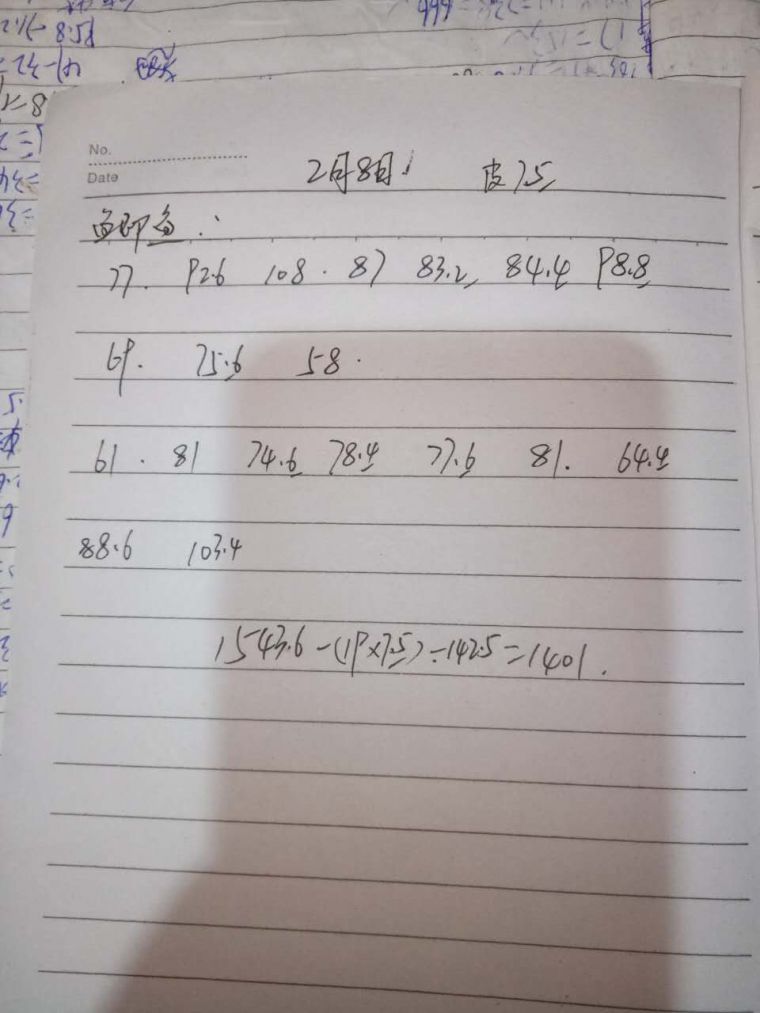 No.
Date
2月8日. 皮7.5
鲫鱼:
77. 92.6 108. 87 83.2 84.4 98.8
69. 75.6 58.
61. 81 74.6 78.4 77.6 81. 64.4
88.6 103.4
1543.6-(19×7.5)-142.5=1401.